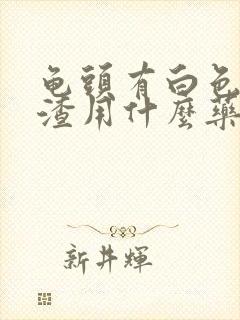 龟頭有白色
渣用什麼藥
新井輝